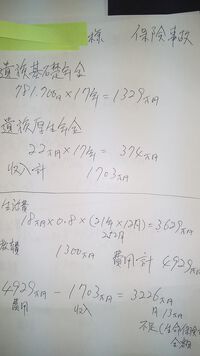 様 保険事故
遺族基礎年金
781.700円×17年=1329万円
遺族厚生年金
22万円×17年= 374万円
収入・計 1703万円
生活費
18万円×0.8×(21年×12月)=3.629万円
252月
教育費 1300万円
費用・計 4929万円
4929万円 - 1703万円 = 3226万円
費用 収入 月13万円
不足(生命保険で